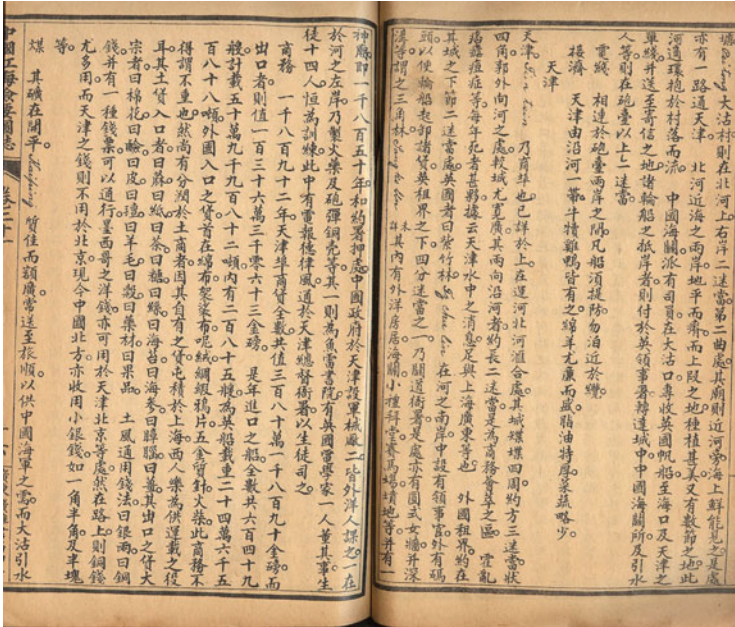 大沽村則在北河上右岸二迷當第二曲處其廟則近河旁海上鮮能見之是處
亦有一路通天津　北河近海之兩岸地平而瘠而上段之地種植甚美又有數節之地此
河適環抱於村落而流　中國海關派有司員在大沽口專收英國帆船至海口及天津之
單并送至寄信之地諸輪船之抵岸者則付於英領事署轉達城中中國海關所及引水
人等則在砲臺以上二迷當
電綫　相連於砲臺兩岸之間凡船須提防勿泊近於纜
接濟　天津由沿河一帶牛犢雞鴨皆有之綿羊尤廉而盛脂油特厚菜蔬略少
天津
天津　乃商埠也已詳於上在運河北河滙合處其城堞四周約方三迷當狀
四角郭外向河之處較城尤寬廣其兩向沿河者約長二迷當是為商務薈萃之區　霍亂
瘟瘧疽症等每年死者甚夥據云天津水中之消息足與上海廣東等也　外國租界約在
其城之下節二迷當處英國者曰紫竹林　在河之南岸中設有領事官外有碼
頭以便輪船起卸諸貨英租界之下四分迷當之一乃關道衙署是處亦有圍式女牆并深
濠等謂之三角林　未詳　其內有外洋房居海關小種拜堂賽馬場墳地等并有一
神廟即一千八百五十年和約署押處中國政府於天津設軍械廠二皆外洋人謀之一在
於河之左岸乃製火藥及砲彈銅壳等其一則為魚雷書院有英國電學家一人董其事生
徒十四人恒為訓練此中有電報德律風通於天津總督衙署以生徒司之
商務　一千八百九十二年天津埠商貨全數共值三百八十萬一千八百九十金磅而
出口者則值一百三十六萬三千零六十三金磅　是年進口之船全數共六百四十九
艘計載五十萬九千九百八十二噸內有二百八十五艘為英船載重二十四萬六千五
百八十八噸外國入口之貨首在綿布袈裟布呢絨綢緞鴉片五金質針火柴此商務不
得謂不重也然尚有分潤於土商者因其自有之貨屯積於上海西人樂為供運載之役
耳其土貨入口者曰蔴曰紙曰茶曰糖曰綠曰海苔曰海參曰薑其出口之貨大
宗者曰棉花曰鹼曰皮曰氊曰羊毛曰穀曰藥材曰果品　土風通用錢法曰銀兩曰銅
錢并有一種錢票可以通行墨西哥之洋錢亦可用於天津北京等處然在路上則銅錢
尤多用而天津之錢則不用於北京現今中國北方亦收用小銀錢如一角半角及半塊
等
煤　其礦在開平 Kaiping 質佳而額廣常送至旅順以供中國海軍之需而大沽引水
中國江海險要圖志　卷二十一